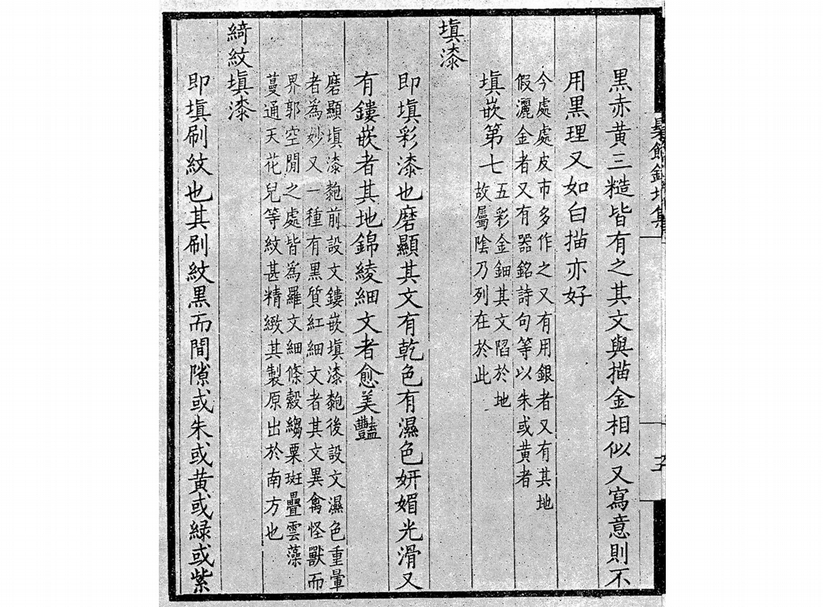 黑赤黃三糙皆有之其文與描金相似又寫意則不
用黑理又如白描亦好
今處處皮市多作之又有用銀者又有其地
假灑金者又有器銘詩句等以朱或黃者
填嵌第七
五彩金鈿其文陷於地
故屬陰乃列在於此
填漆
即填彩漆也磨顯其文有乾色有濕色妍媚光滑又
有鏤嵌者其地錦綾細文者愈美豔
磨顯填漆𪌂前設文鏤嵌填漆𪌂後設文濕色重暈
者為妙又一種有黑質紅細文者其文異禽怪獸而
界郭空閒之處皆為羅文細條縠縐粟斑疊雲藻
蔓通天花兒等紋甚精緻其製原出於南方也
綺紋填漆
即填刷紋也其刷紋黑而間隙或朱或黃或綠或紫